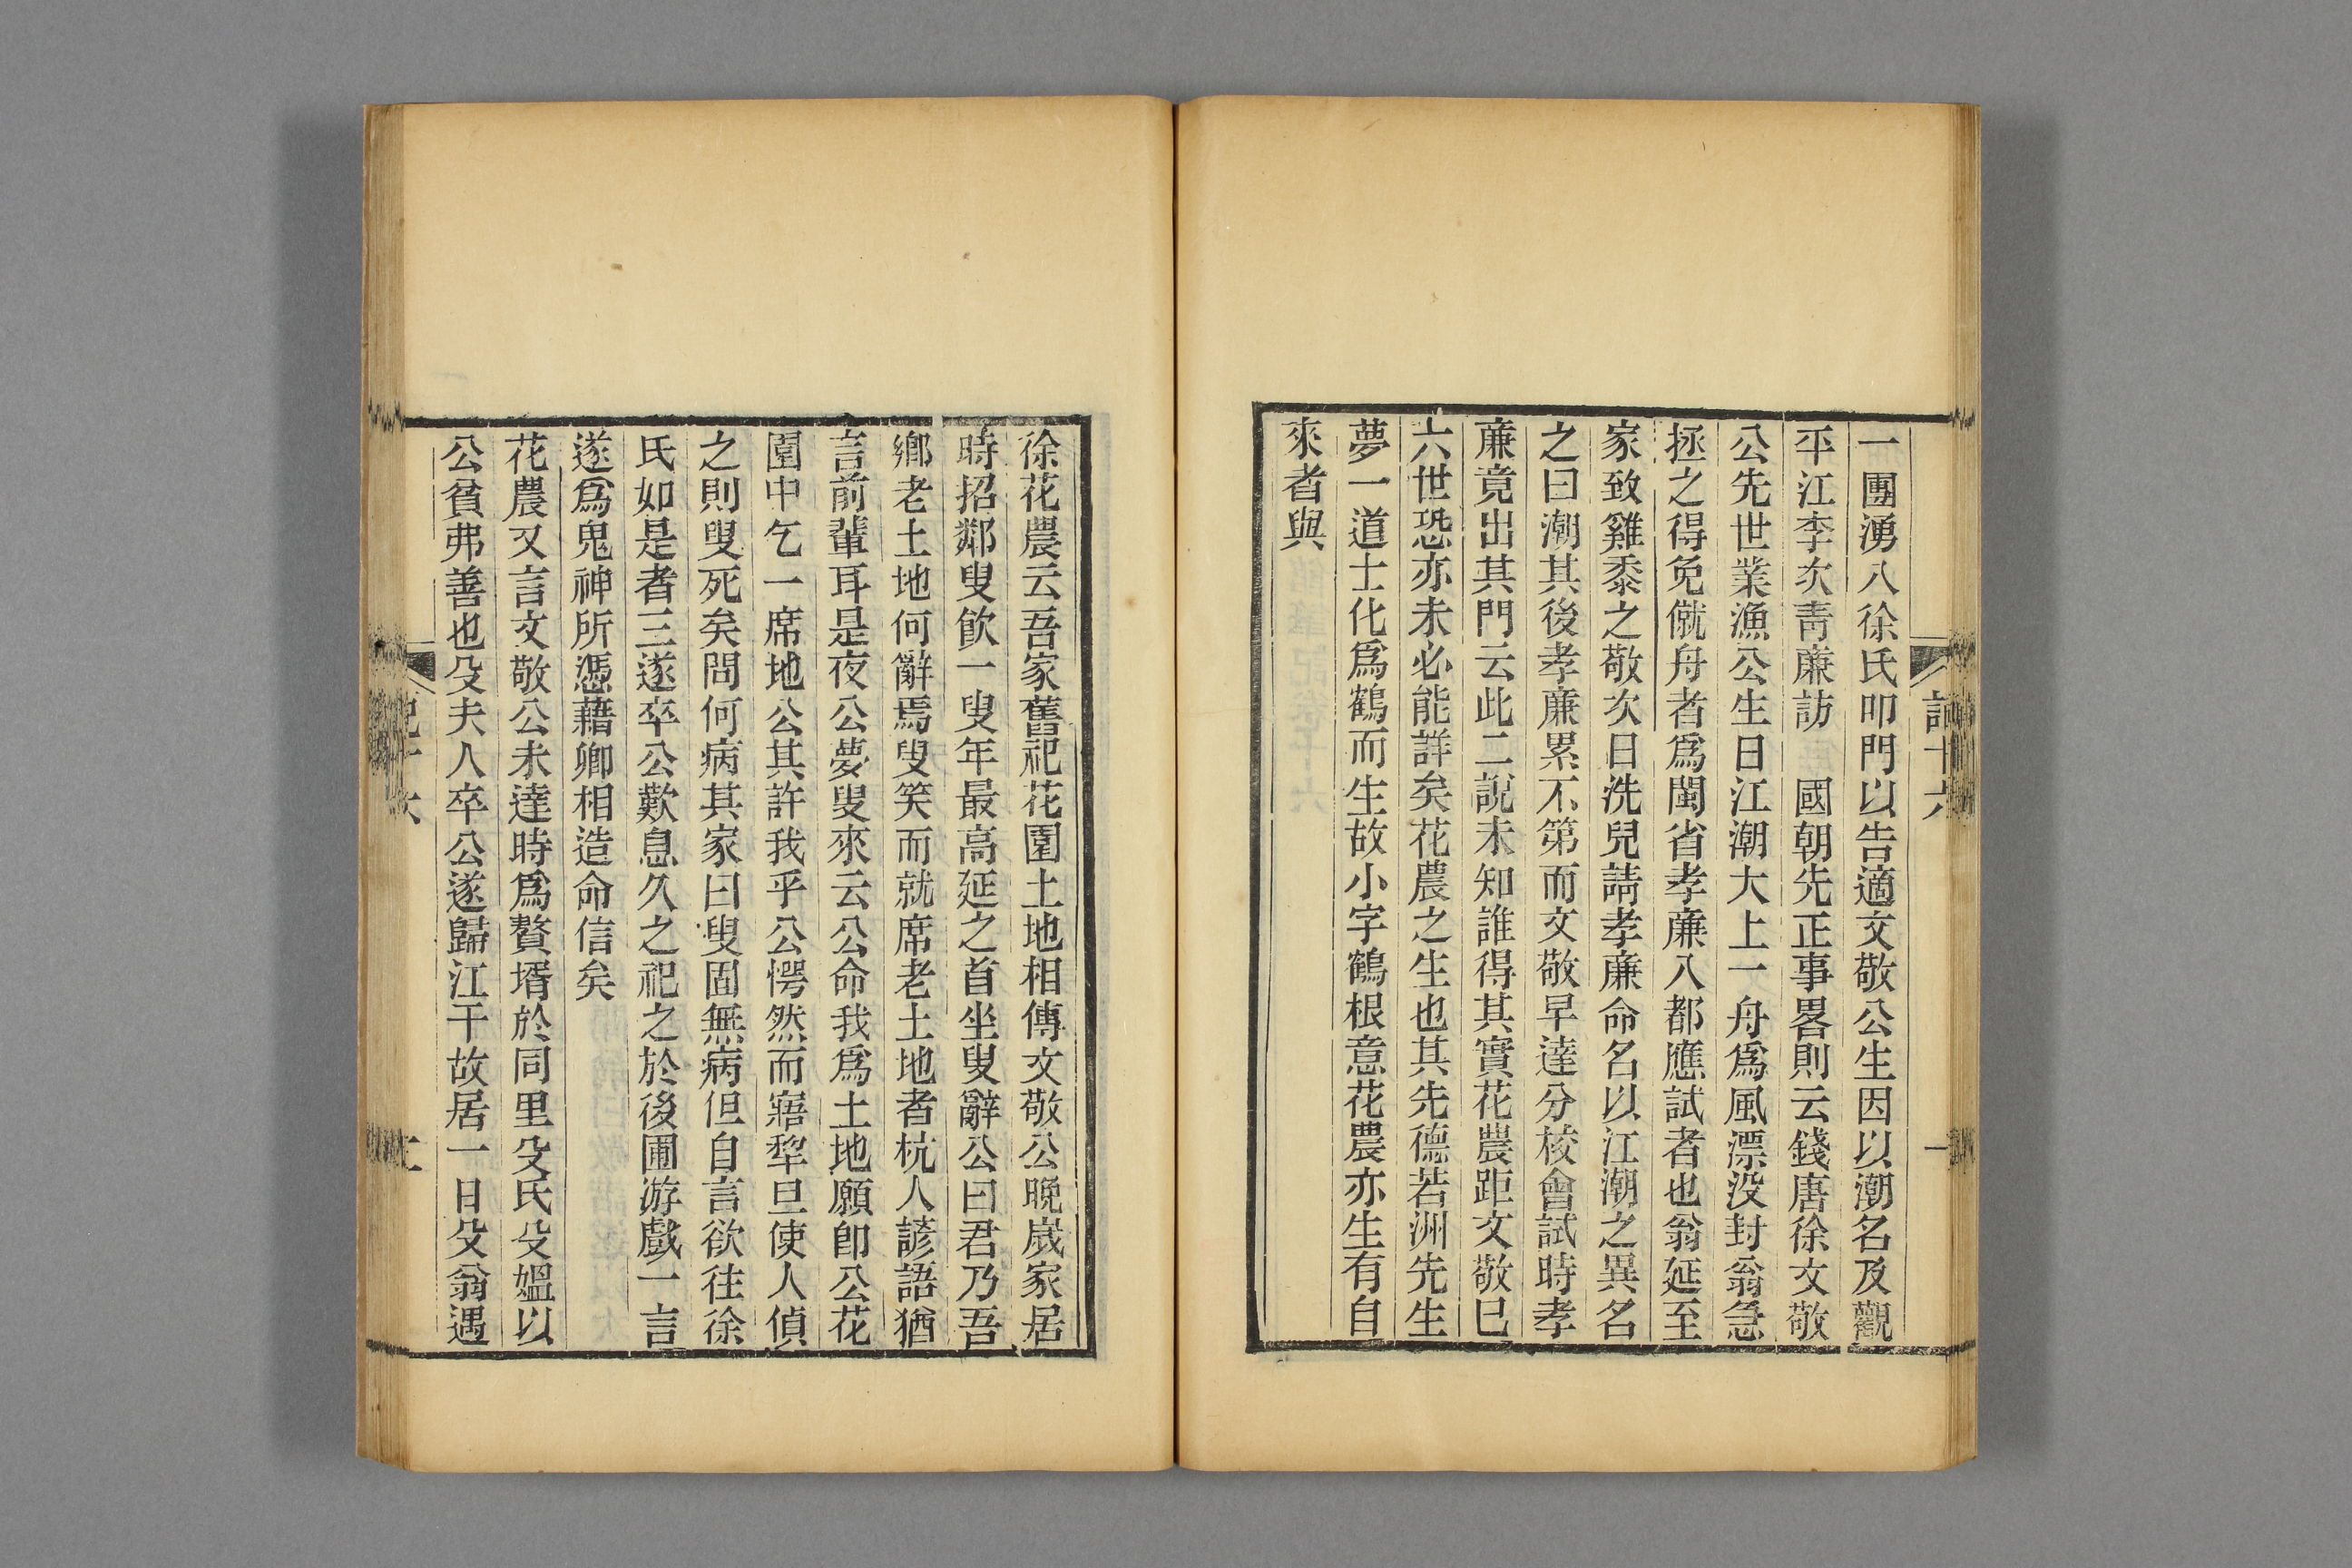 記十六
一
一團湧入徐氏叩門以告適文敬公生因以潮名及觀
平江李次靑廉訪　國朝先正事畧則云錢唐徐文敬
公先世業漁公生日江潮大上一舟爲風漂没封翁急
拯之得免僦舟者爲閩省孝廉入都應試者也翁延至
家致雞黍之敬次日洗兒請孝廉命名以江潮之異名
之曰潮其後孝廉累不第而文敬早達分校會試時孝
廉竟出其門云此二說未知誰得其實花農距文敬已
六世恐亦未必能詳矣花農之生也其先德若洲先生
夢一道士化爲鶴而生故小字鶴根意花農亦生有自
來者與
徐花農云吾家舊祀花園土地相傳文敬公晚歲家居
時招鄰叟飲一叟年最高延之首坐叟辭公曰君乃吾
鄉老土地何辭焉叟笑而就席老土地者杭人諺語猶
言前輩耳是夜公夢叟來云公命我爲土地願卽公花
園中乞一席地公其許我乎公愕然而寤犂旦使人偵
之則叟死矣問何病其家曰叟固無病但自言欲往徐
氏如是者三遂卒公歎息久之祀之於後圃游戲一言
遂爲鬼神所憑藉卿相造命信矣
花農又言文敬公未達時爲贅壻於同里殳氏殳媼以
公貧弗善也殳夫人卒公遂歸江干故居一日殳翁遇